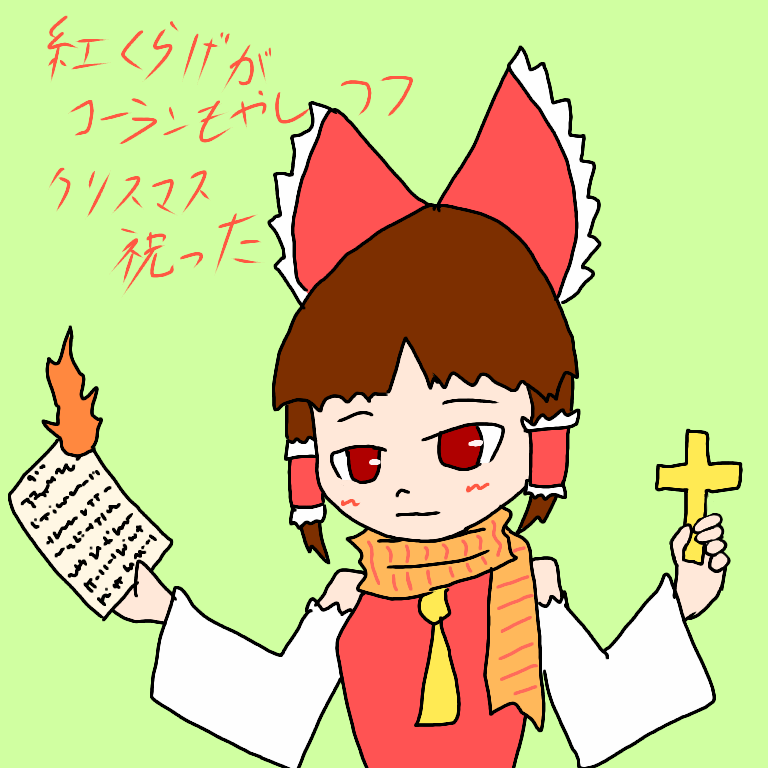 紅くらげが
コーランもやしつつ
クリスマス
祝った